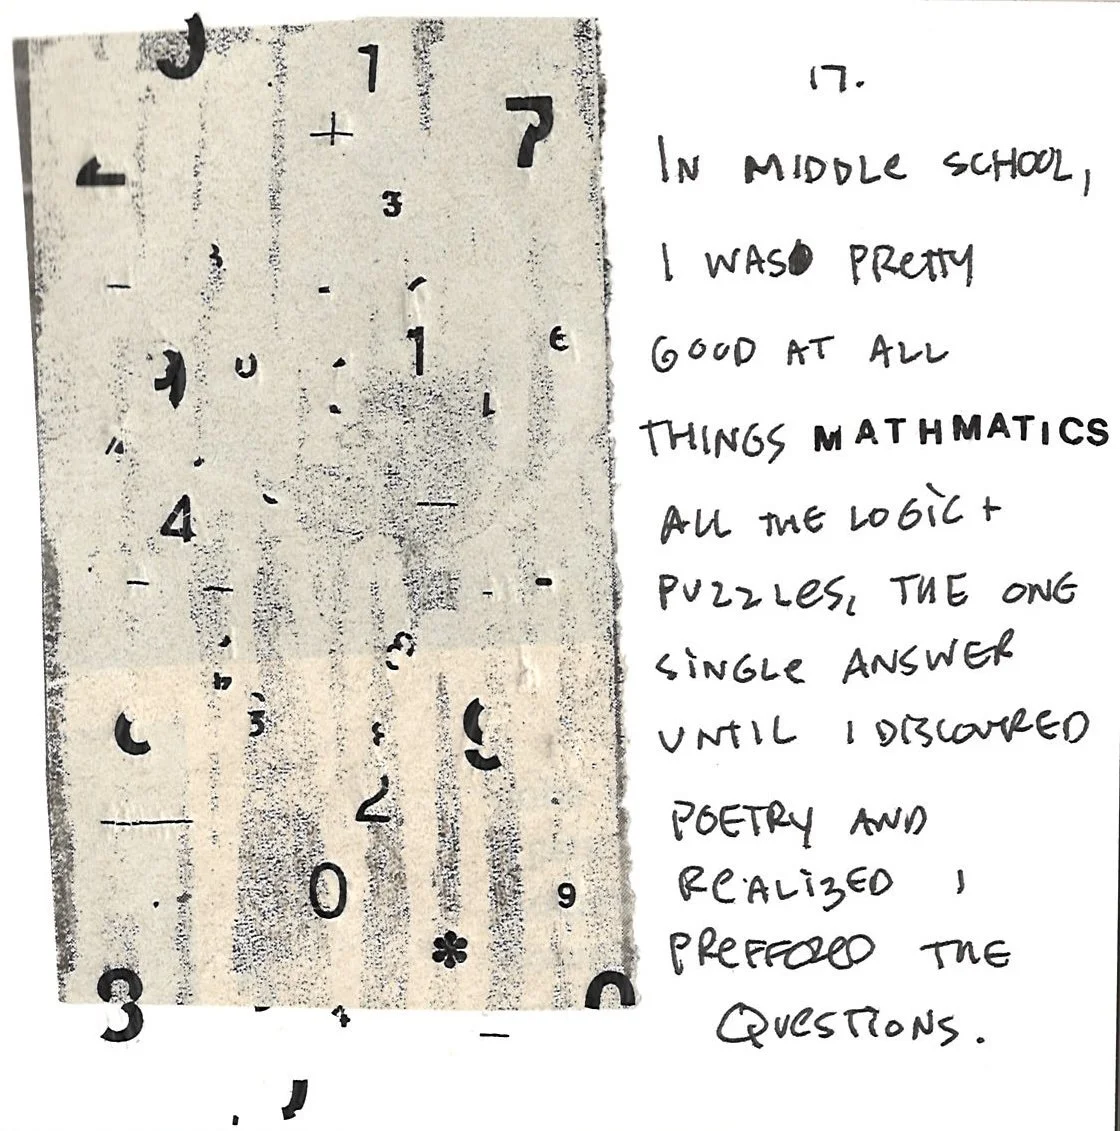 17.
IN MIDDLE SCHOOL,
I WAS PRETTY
GOOD AT ALL
THINGS MATHMATICS
ALL THE LOGIC +
PUZZLES, THE ONE
SINGLE ANSWER
UNTIL I DISCOVERED
POETRY AND
REALIZED I
PREFFERED THE
QUESTIONS.
1
+
7
3
3
1
4
3
3
2
0
9
*
3
4